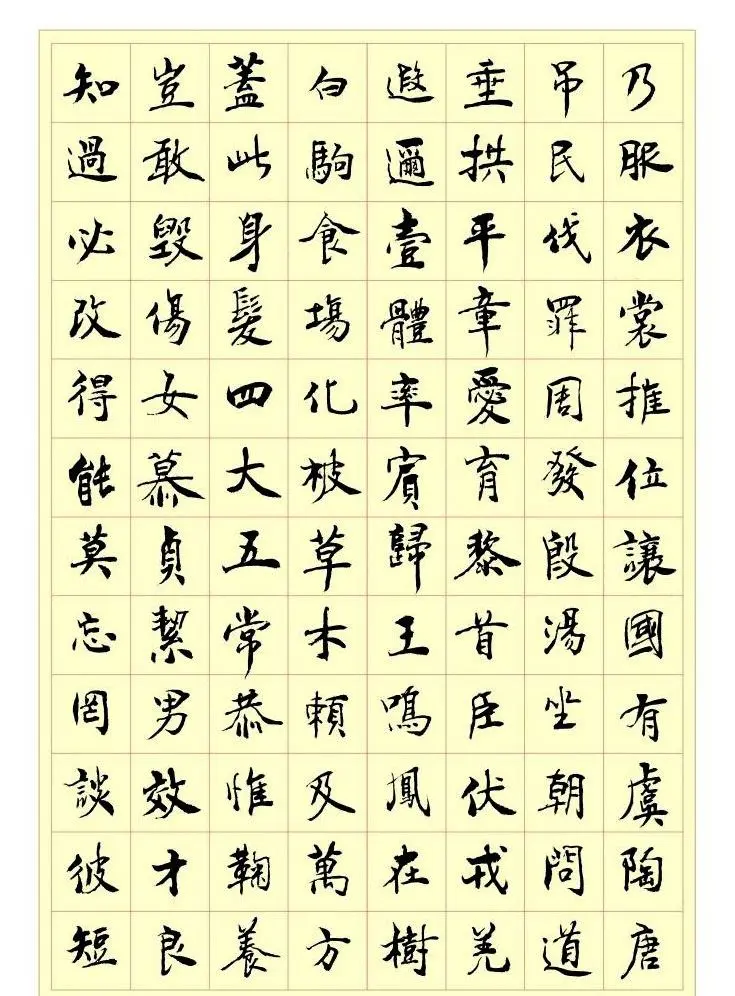 乃服衣裳推位讓國有虞陶唐
吊民伐罪周發殷湯坐朝問道
垂拱平章愛育黎首臣伏戎羌
遐邇壹體率賓歸王鳴鳳在樹
白駒食場化被草木賴及萬方
蓋此身髮四大五常恭惟鞠養
豈敢毀傷女慕貞絜男效才良
知過必改得能莫忘罔談彼短